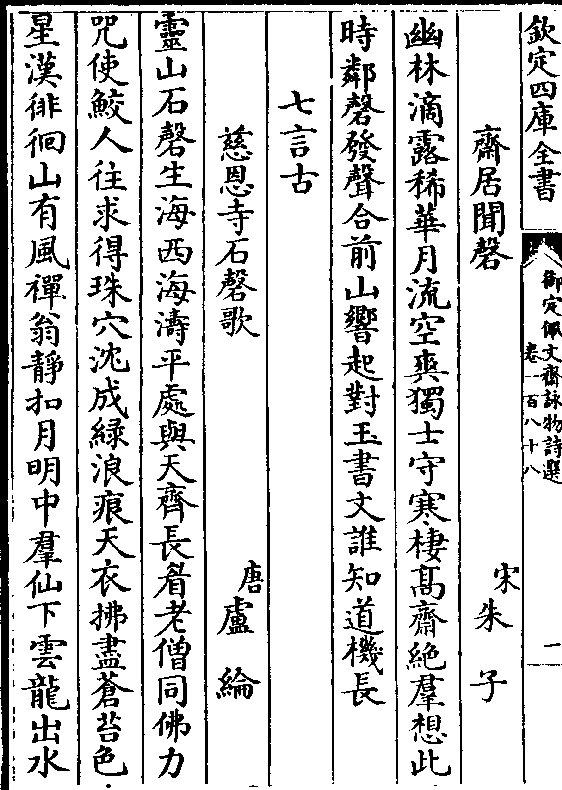 欽定四庫全書
御定佩文齋詠物詩選
卷一百八十八
一
齋居聞磬
宋朱子
幽林滴露稀華月流空爽獨士守寒棲高齋絶羣想此
時鄰磬發聲合前山響起對玉書文誰知道機長
七言古
慈恩寺石磬歌
唐盧綸
靈山石磬生海西海濤平處與天齊長眉老僧同佛力
咒使鮫人往求得珠穴沈成綠浪痕天衣拂盡蒼苔色
星漢徘徊山有風禪翁靜扣月明中羣仙下雲龍出水